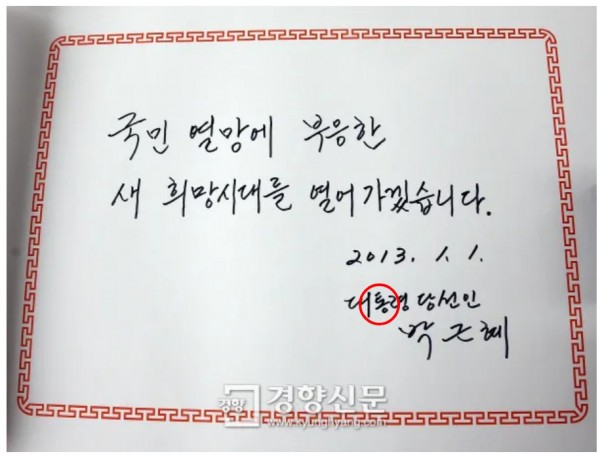 국민 열망에 부응한
새 희망시대를 열어가겠습니다.
2013. 1. 1.
대통령 당선인
박근혜
경향 경향신문
www.kyunghyang.com